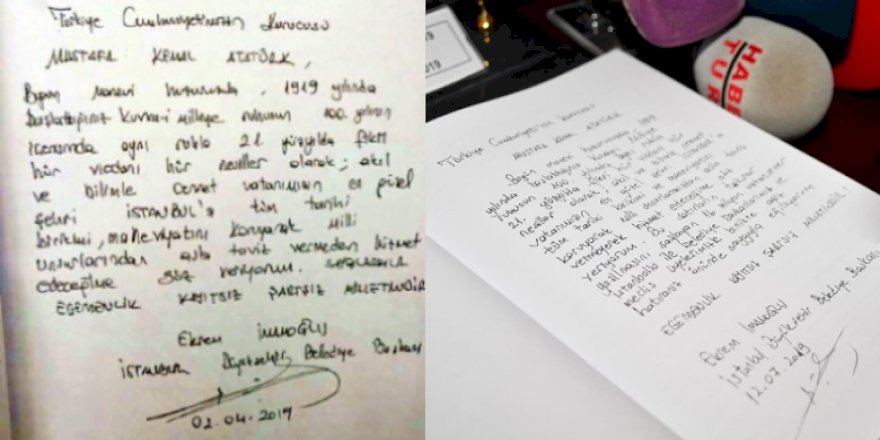 Türkiye Cumhuriyetinin Kurucusu
MUSTAFA KEMAL ATATÜRK,
Bugün Manevi huzurunda, 1919 yılında
başlattığınız Kuvayi Milliye ruhunun 100. yılının
içerisinde aynı ruhla 21. yüzyılda fikri
hür vicdanı hür nesiller olarak; akıl
ve bilimle Cennet vatanımızın en güzel
şehri İSTANBUL'a tüm tarihi
birikimi, maneviyatını koruyarak Milli
unsurlarından asla taviz vermeden hizmet
edeceğime söz veriyorum. SAYGILARIMLA
EGEMENLİK KAYITSIZ ŞARTSIZ MİLLETİNDİR
Ekrem İMAMOĞLU
İSTANBUL Büyükşehir Belediye Başkanı
02.04.2019
2019
HABER
TÜRK
Türkiye Cumhuriyeti'nin kurucusu
MUSTAFA KEMAL ATATÜRK
Bugün manevi huzurunda 1919
yılında başlattığınız Kuvayi Milliye
ruhunun 100. yılında aynı ruhla
21. yüzyılda fikri hür vicdanı hür
nesiller olarak, akıl ve bilimle cennet
vatanımızın en güzel şehri İstanbul'a
tüm tarihi birikimi ve maneviyatını
koruyarak milli unsurlarından asla taviz
vermeyerek hizmet edeceğime söz
veriyorum. Bu satırların tekrar
yazılmasını sağlayan 16 milyon vatansever
İstanbullu ile Belediye Başkanlarımız ve
meclis üyelerimizle birlikte aziz
hatıranız önünde saygıyla eğiliyorum
EGEMENLİK KAYITSIZ ŞARTSIZ MİLLETİNDİR!
Ekrem İMAMOĞLU
İstanbul Büyükşehir Belediye Başkanı
12.07.2019